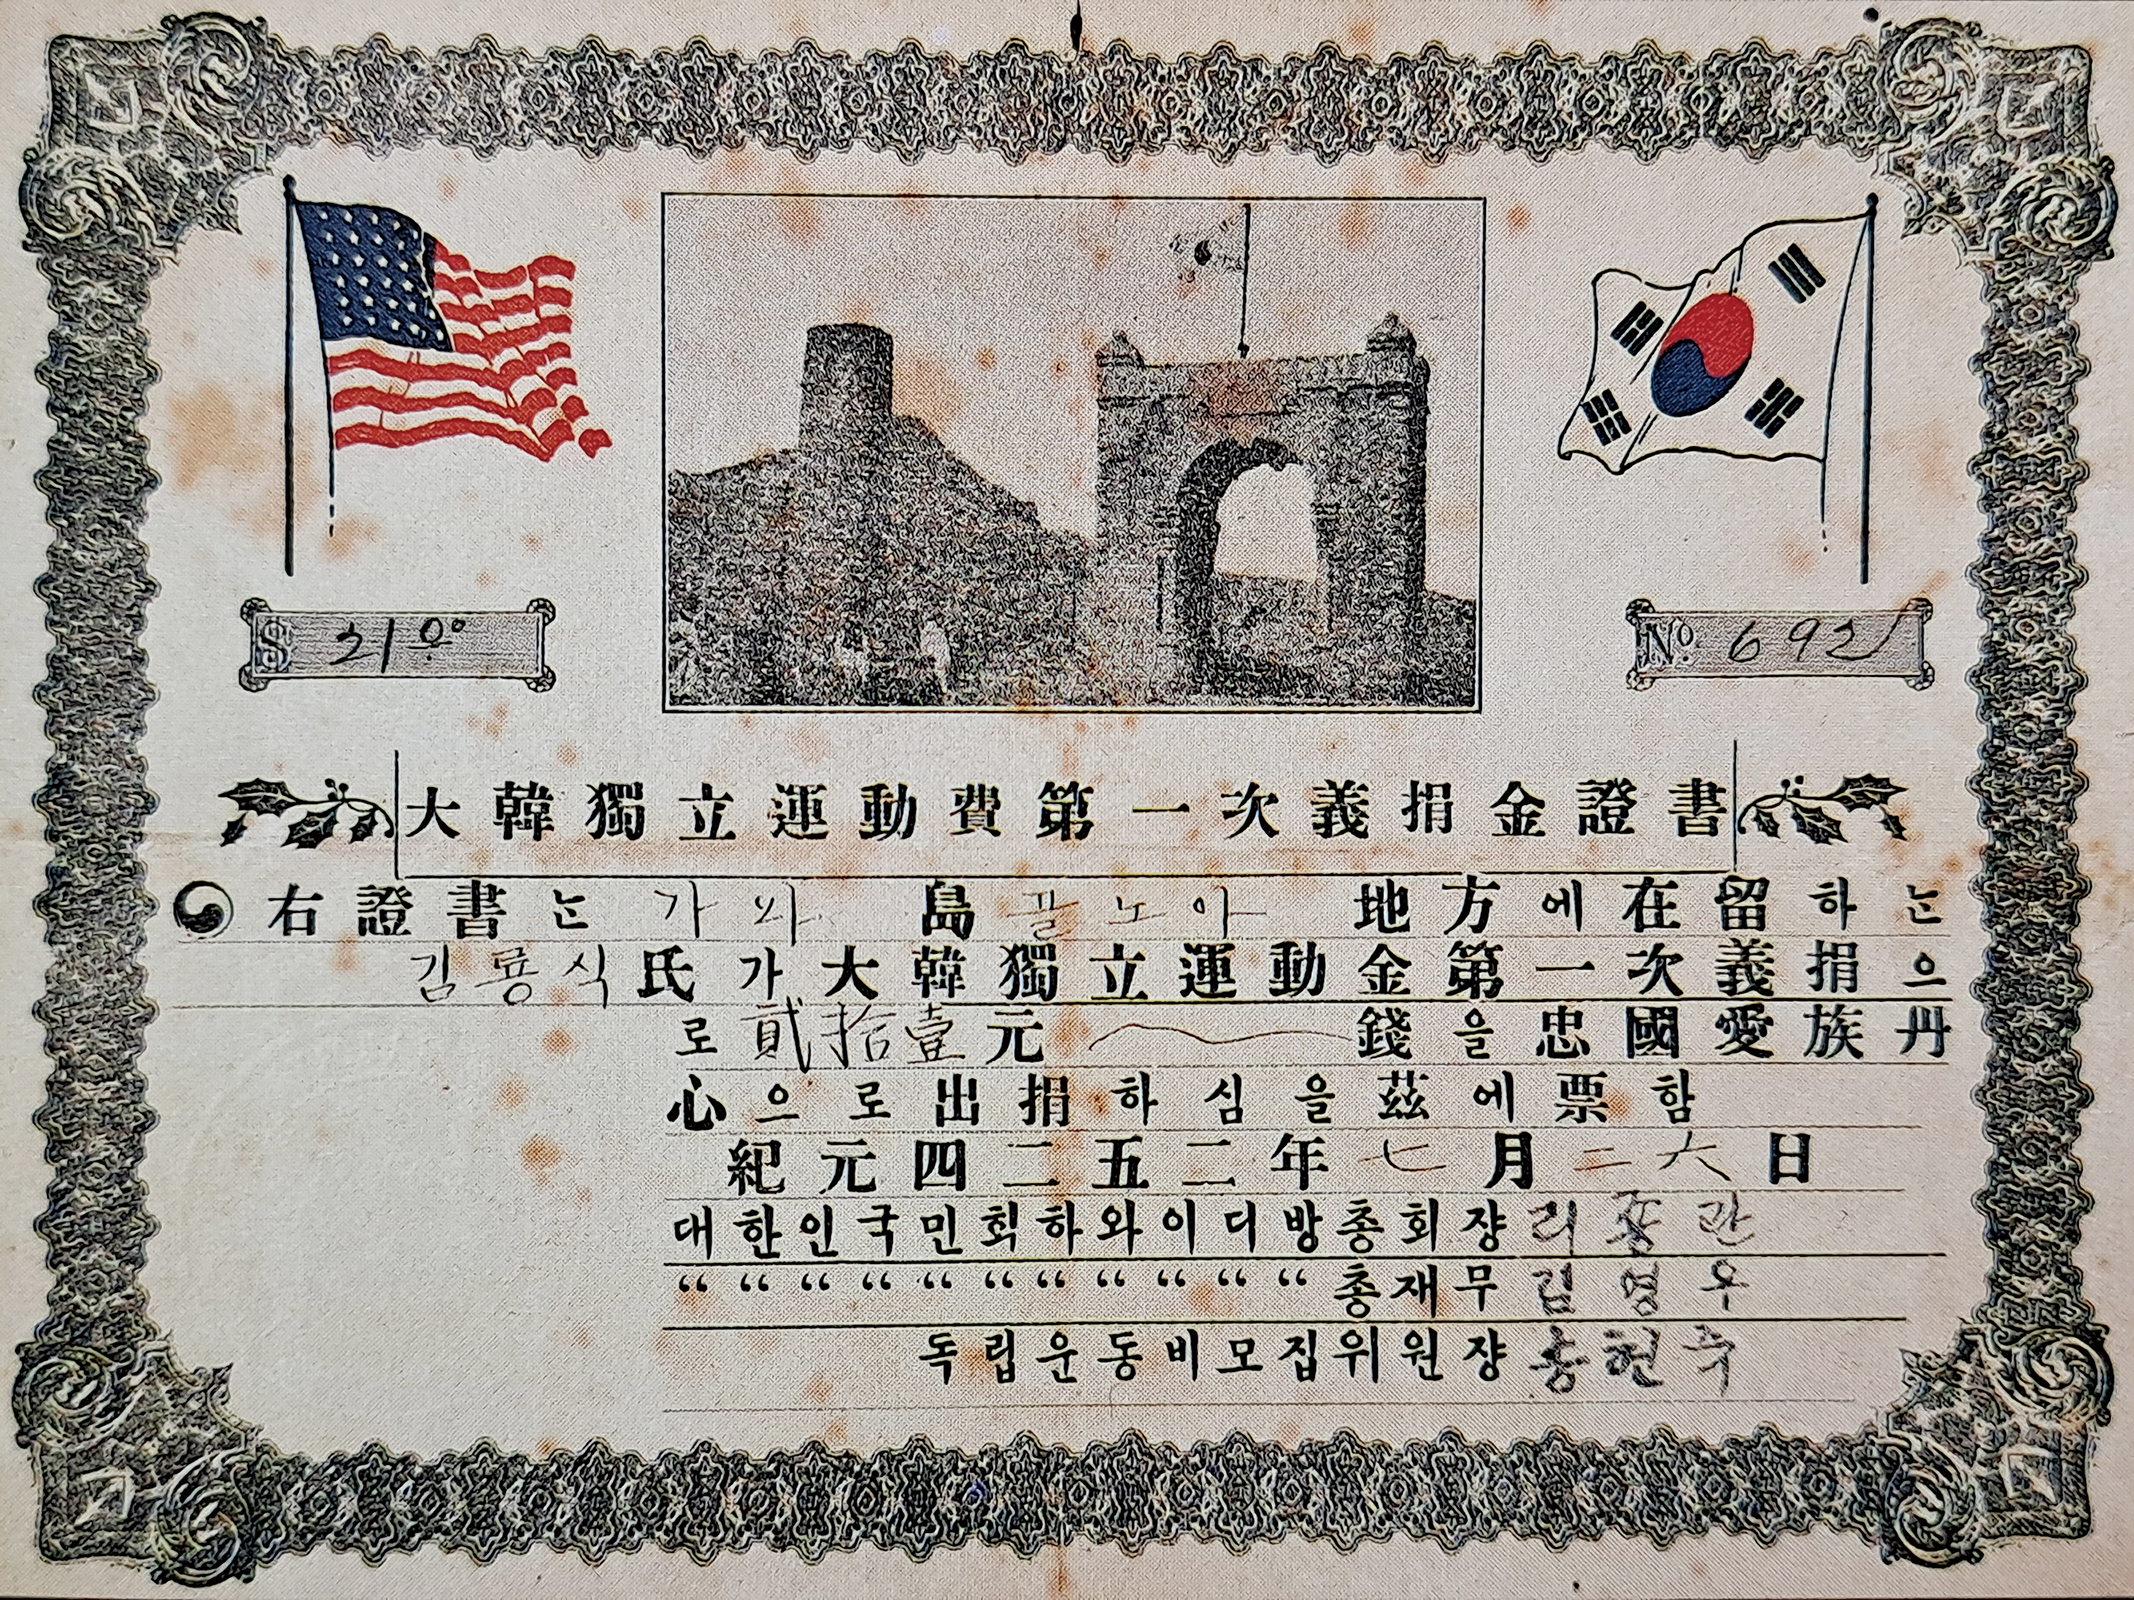 $ 21.00
No 692
大韓獨立運動費第一次義捐金證書
右證書는 가와 島 골노아 地方에在留하는
김룡식氏가大韓獨立運動金第一次義捐으
로貳拾壹元 錢을忠國愛族丹
心으로出捐하심을玆에票함
紀元四二五二年七月二六日
대한인국민회하와이디방총회쟝 리종관
“ “ “ “ “ “ “ “ “ “ “ 총재무 김영우
독립운동비모집위원쟝 송헌주